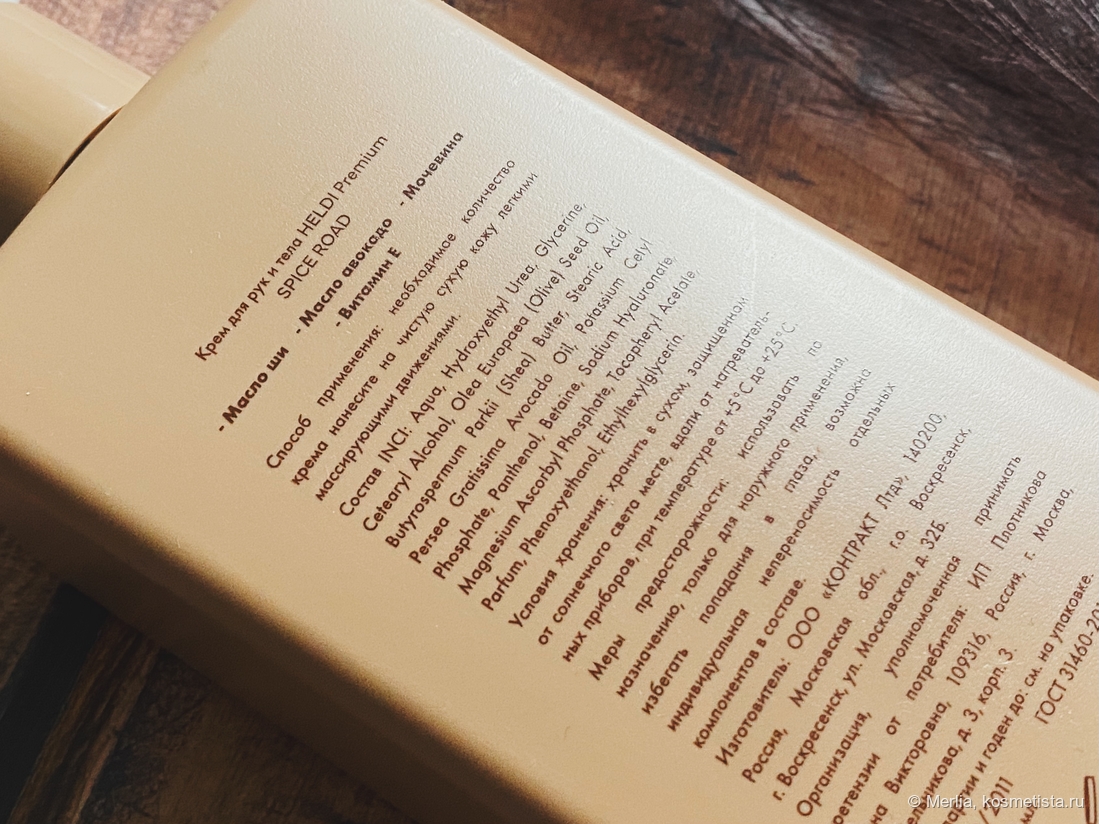 Крем для рук и тела HELDI Premium
SPICE ROAD
- Масло ши - Масло авокадо - Мочевина
- Витамин Е
Способ применения: необходимое количество
крема нанесите на чистую сухую кожу легкими
массирующими движениями.
Состав INCI: Aqua, Hydroxyethyl Urea, Glycerine,
Cetearyl Alcohol, Olea Europaea (Olive) Seed Oil,
Butyrospermum Parkii (Shea) Butter, Stearic Acid,
Persea Gratissima Avocado Oil, Potassium Cetyl
Phosphate, Panthenol, Betaine, Sodium Hyaluronate,
Magnesium Ascorbyl Phosphate, Tocopheryl Acetate,
Parfum, Phenoxyethanol, Ethylhexylglycerin.
Условия хранения: хранить в сухом, защищенном
от солнечного света месте, вдали от нагреватель-
ных приборов, при температуре от +5°С до +25°С.
Меры предосторожности: использовать по
назначению, только для наружного применения,
избегать попадания в глаза, возможна
индивидуальная непереносимость отдельных
компонентов в составе.
Изготовитель: ООО «КОНТРАКТ Лтд», 140200,
Россия, Московская обл., г.о. Воскресенск,
г. Воскресенск, ул. Московская, д. 32Б.
Организация, уполномоченная принимать
ретензии от потребителя: ИП Плотникова
на Викторовна, 109316, Россия, г. Москва,
ельникова, д. 3, корп. 3.
артии и годен до: см. на упаковке.
/2011 ГОСТ 31460-201
© Merlia, kosmetista.ru